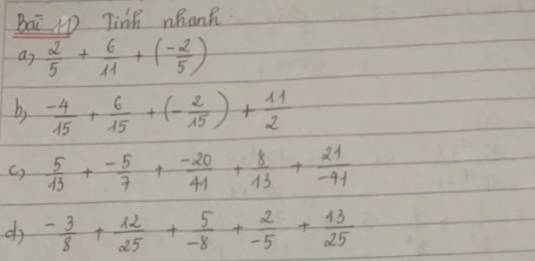 Bài 11) Tính nhanh
a, 2/5 + 6/11 + (-2/5)
b, -4/15 + 6/15 + (-2/15) + 11/2
c, 5/13 + -5/7 + -20/41 + 8/13 + 21/-41
d, -3/8 + 12/25 + 5/-8 + 2/-5 + 13/25